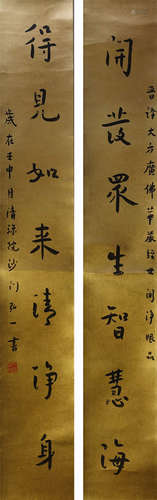 晉譯大方廣佛華嚴經世間淨眼品
開發眾生智慧海
得見如來清淨身
歲在壬申月清涼院沙門弘一書